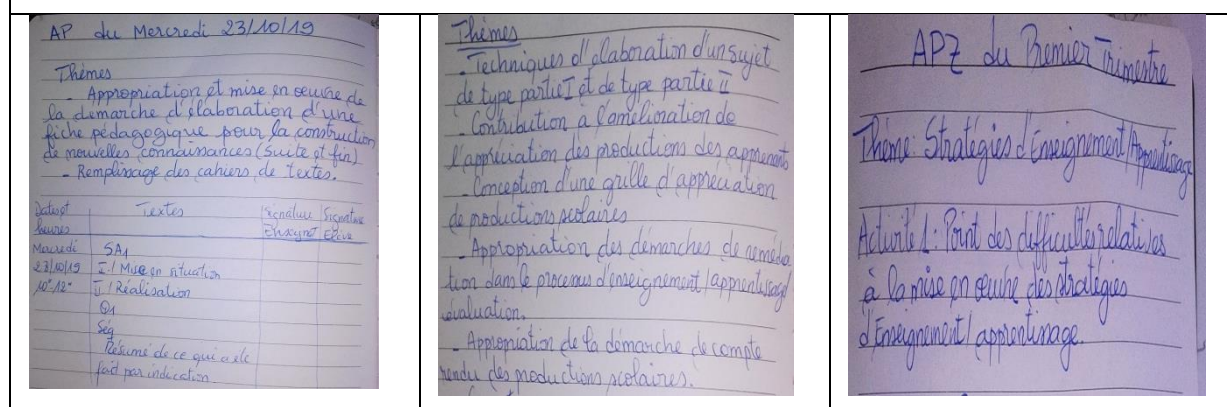 AP du Mercredi 23/10/19
Thèmes
- Appropriation et mise en œuvre de
la démarche d'élaboration d'une
fiche pédagogique pour la construction
de nouvelles connaissances (Suite et fin)
- Remplissage des cahiers de textes.
Dates et heures | Textes | Signature Enseignt | Signature Elève
Mercredi | SA1
23/10/19 | I-/ Mise en situation
10h-12h | II / Réalisation
Q1
Séq
Résumé de ce qui a été
fait par indication
Thèmes
- Techniques d'élaboration d'un sujet
de type partie I et de type partie II
- Contribution à l'amélioration de
l'appréciation des productions des apprenants
- Conception d'une grille d'appréciation
de productions scolaires
- Appropriation des démarches de remédia
tion dans le processus d'enseignement/apprentissage/
évaluation.
- Appropriation de la démarche de compte
rendu des productions scolaires.
APZ du Premier Trimestre
Thème: Stratégies d'Enseignement/Apprentissage
Activité 1: Point des difficultés relatives
à la mise en œuvre des stratégies
d'Enseignement/apprentissage.